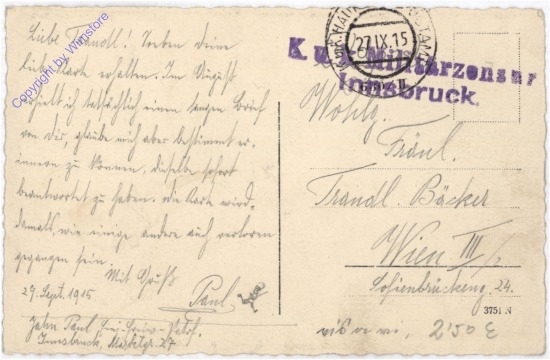 Copyright by Wingstore
Liebe Trandl! Soeben deine
liebe Karte erhalten. Im August
erhielt ich tatsächlich einen langen Brief
von dir, glaube mich aber bestimmt er-
innern zu können, dieselbe sofort
beantwortet zu haben. Die Karte wird
damals, wie einige andere auch verloren
gegangen sein.
Mit Gruß
Paul
29. Sept. 1915
Jahn Paul
Innsbruck, 27
27 IX. 15
K. u. k. Militärzensur
Innsbruck.
Wohlg.
Fräul.
Trandl Bäcker
Wien III/2
Sofienbrückeng. 24.
3751 N
2'50 €